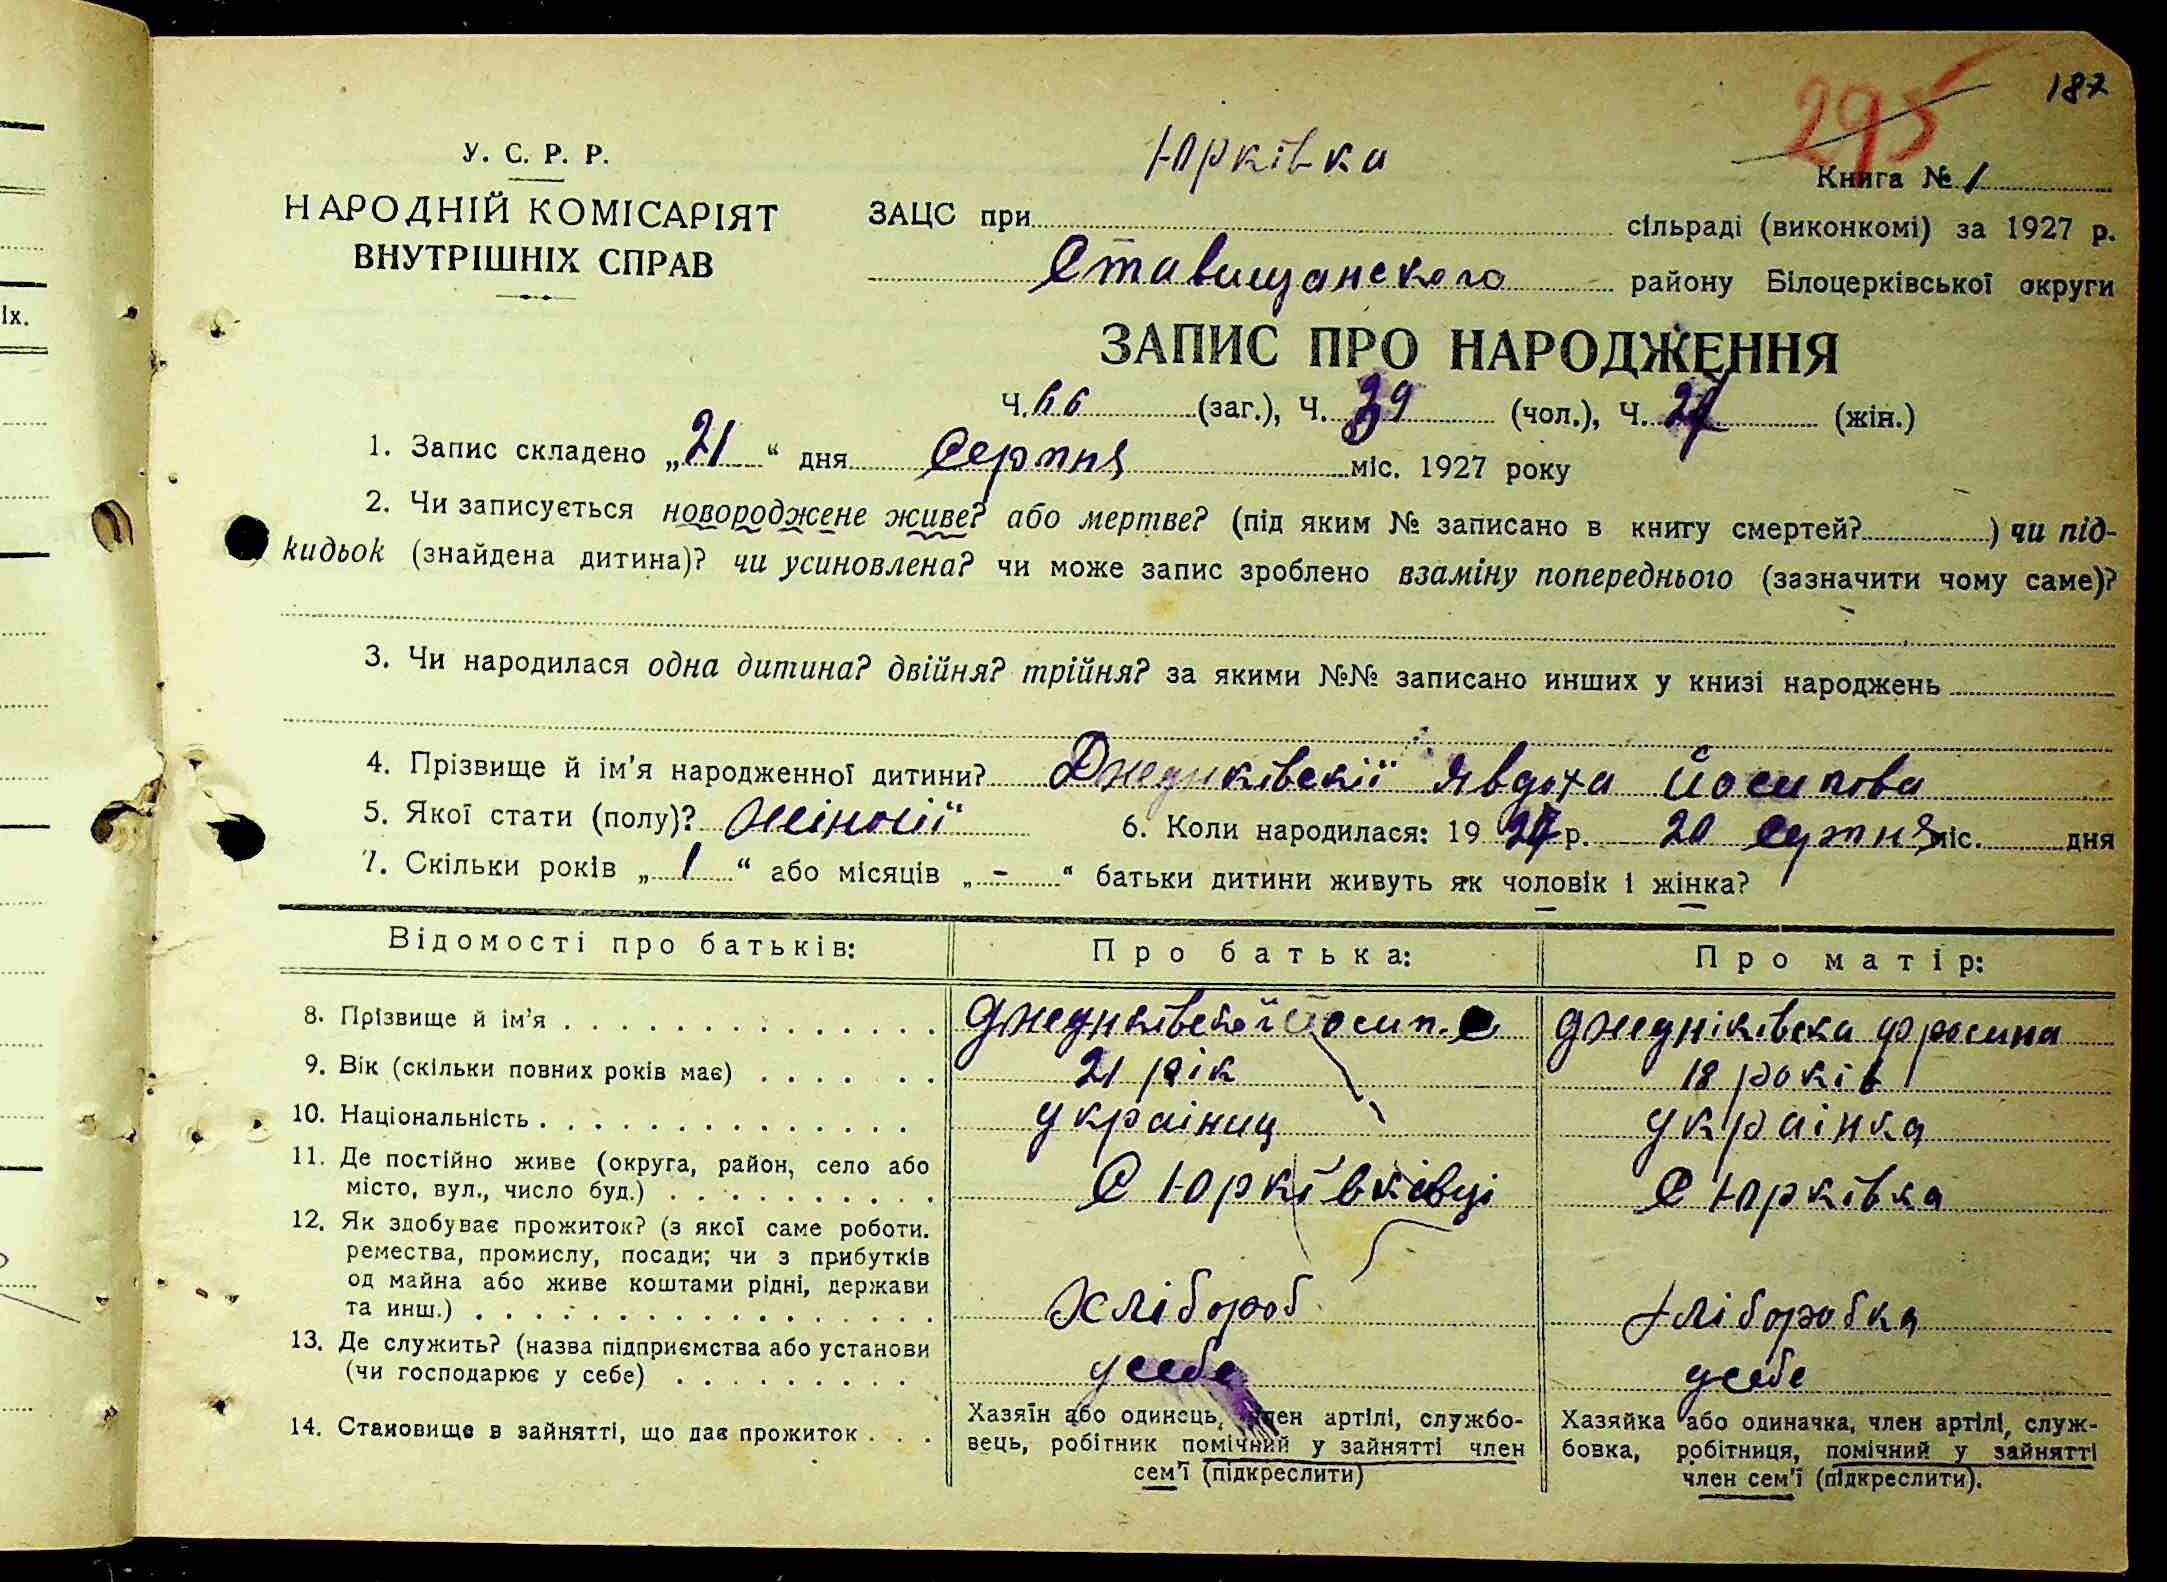 187
295
У. С. Р. Р.
НАРОДНІЙ КОМІСАРІЯТ
ВНУТРІШНІХ СПРАВ
Юрківка
Книга № 1
ЗАЦС при сільраді (виконкомі) за 1927 р.
Ставищанского району Білоцерківської округи
ЗАПИС ПРО НАРОДЖЕННЯ
Ч. 66 (заг.), Ч. 39 (чол.), Ч. 27 (жін.)
1. Запис складено „21“ дня Серпня міс. 1927 року
2. Чи записується новороджене живе? або мертве? (під яким № записано в книгу смертей? ) чи під-
кидьок (знайдена дитина)? чи усиновлена? чи може запис зроблено взаміну попереднього (зазначити чому саме)?
3. Чи народилася одна дитина? двійня? трійня? за якими №№ записано инших у книзі народжень
4. Прізвище й ім'я народженної дитини? Явдоха Йосипова
5. Якої стати (полу)? жіночії 6. Коли народилася: 1927 р. 20 міс. дня
7. Скільки років „1“ або місяців „-“ батьки дитини живуть як чоловік і жінка?
Відомості про батьків: Про батька: Про матір:
8. Прізвище й ім'я Йосип. Джедніківска Фросина
9. Вік (скільки повних років має) 21 рік 18 років
10. Національність україниц українка
11. Де постійно живе (округа, район, село або
місто, вул., число буд.) С Юрківківці С Юрківка
12. Як здобуває прожиток? (з якої саме роботи.
ремества, промислу, посади; чи з прибутків
од майна або живе коштами рідні, держави
та инш.) Хлібороб Хліборобка
13. Де служить? (назва підприємства або установи
(чи господарює у себе) усебе усебе
14. Становище в зайнятті, що дає прожиток
Хазяїн або одинець, член артілі, службо-
вець, робітник помічний у зайнятті член
сем'ї (підкреслити)
Хазяйка або одиначка, член артілі, служ-
бовка, робітниця, помічний у зайнятті
член сем'ї (підкреслити).
іх.